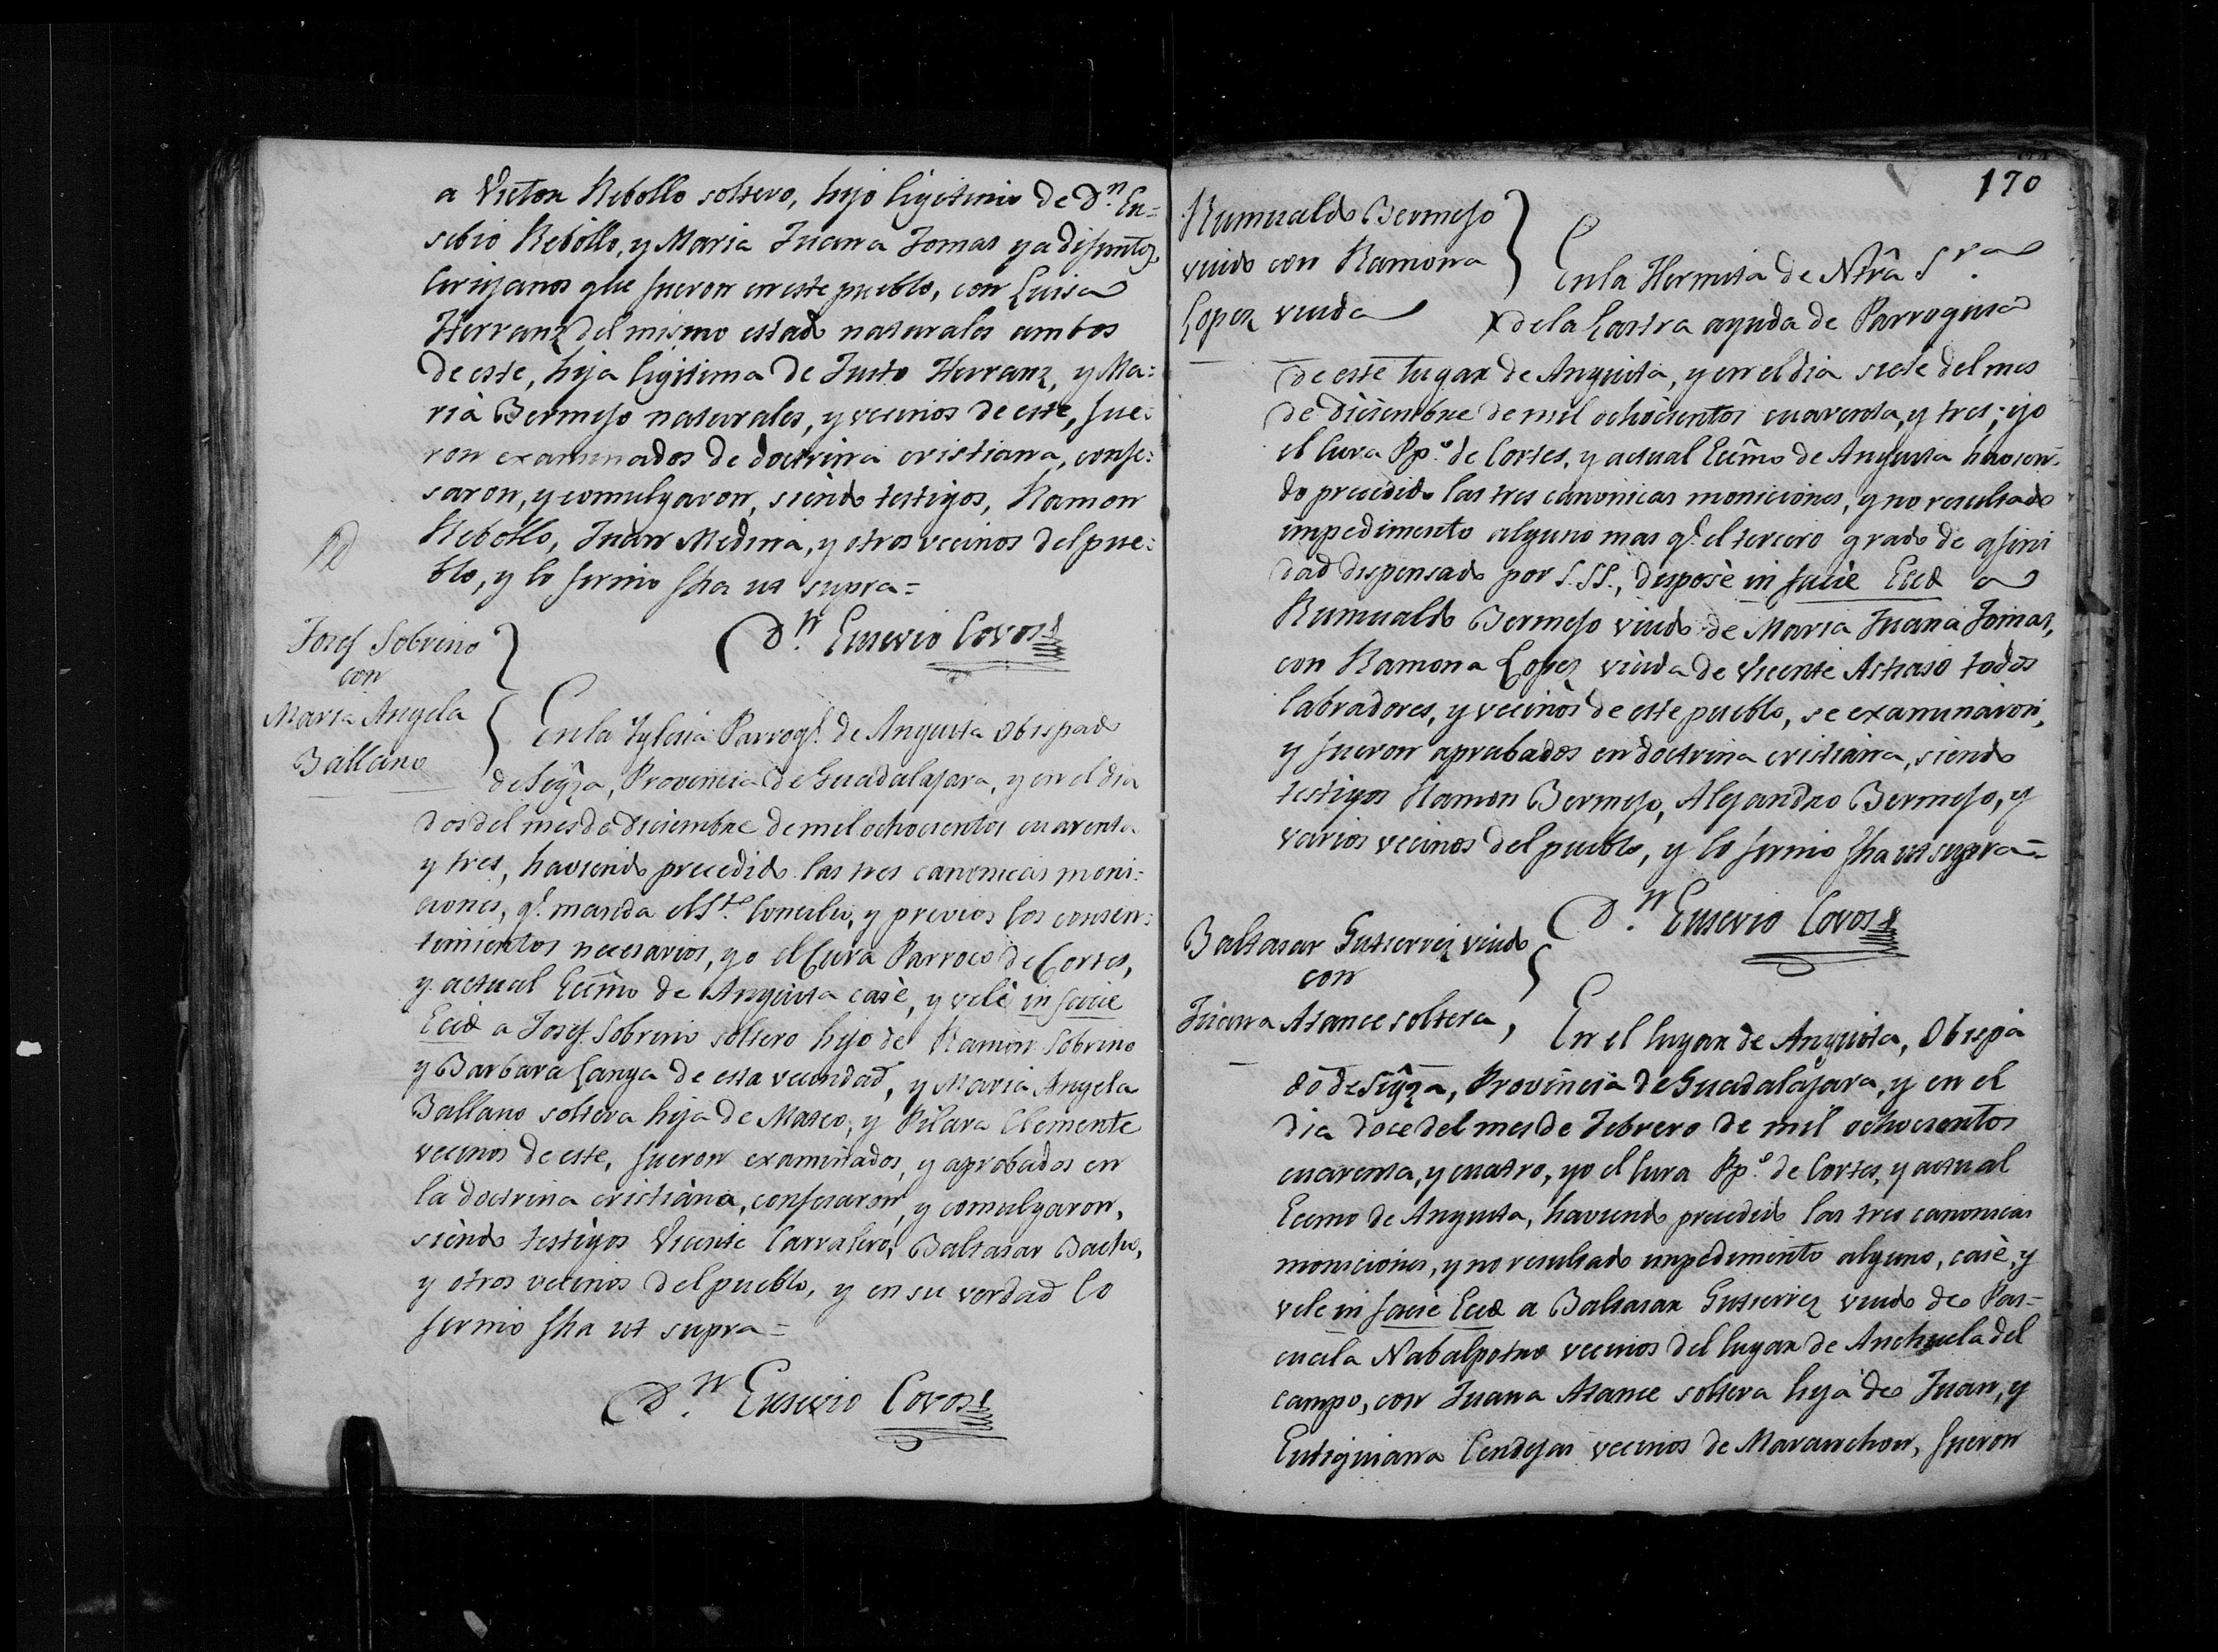 a Victor Rebollo soltero, hijo ligitimo de Dn. Eu=
sebio Rebollo, y Maria Juana Tomas ya difuntos,
Cirujanos que fueron en este pueblo, con Luisa
Herranz del mismo estado naturales ambos
de este, hija ligitima de Justo Herranz, y Ma:
ria Bermejo naturales, y vecinos de este, fue:
ron examinados de doctrina cristiana, confe:
saron, y comulgaron, siendo testigos, Ramon
Rebollo, Juan Medina, y otros vecinos del pue:
blo, y lo firmo fha ut supra=
Dn. Eusevio Covos
Josef Sobrino
con
Maria Angela
Ballano
En la Yglesia Parroql. de Anguita Obispado
de Sigza, Provincia de Guadalajara, y en el dia
dos del mes de Diciembre de mil ochocientos cuarenta
y tres, haviendo precedido las tres canonicas moni:
ciones, ql. manda el Sto. Concilio, y previos los consen:
timientos necesarios, yo el Cura Parroco de Cortes,
y actual Ecmo de Anguita casè, y velè in facie
Ecce a Josef Sobrino soltero hijo de Ramon Sobrino
y Barbara Langa de esta vecindad, y Maria Angela
Ballano soltera hija de Mateo, y Pilara Clemente
vecinos de este, fueron examinados, y aprobados en
la doctrina cristiana, confesaron, y comulgaron,
siendo testigos Vicente Carratero, Baltasar
y otros vecinos del pueblo, y en su verdad lo
firmo fha ut supra=
Dn. Eusevio Covos
170
Rumualdo Bermejo
viudo con Ramona
Lopez viuda
En la Hermita de Ntrâ Sra.
de la Lastra ayuda de Parroquia
de este lugar de Anguita, y en el dia siete del mes
de Diciembre de mil ochocientos cuarenta, y tres; yo
el Cura Ppo. de Cortes, y actual Ecmo de Anguita havien:
do precedido las tres canonicas moniciones, y no resultado
impedimento alguno mas ql. el tercero grado de afini
dad dispensado por S.SS., desposè in facie Ecce a
Rumualdo Bermejo viudo de Maria Juana Tomas,
con Ramona Lopez viuda de Vicente Astraso todos
labradores, y vecinos de este pueblo, se examinaron,
y fueron aprabados en doctrina cristiana, siendo
testigos Ramon Bermejo, Alejandro Bermejo, y
varios vecinos del pueblo, y lo firmo fha ut supra=
Dn. Eusevio Covos
Baltasar Gutierrez viudo
con
Juana Atance soltera,
En el lugar de Anguita, Obispa
do de Sigza, Provincia de Guadalajara, y en el
dia doce del mes de Febrero de mil ochocientos
cuarenta, y cuatro, yo el Cura Ppo. de Cortes, y actual
Ecmo de Anguita, haviendo precedido las tres canonicas
moniciones, y no resultado impedimento alguno, casè, y
vele in facie Ecce a Baltasar Gutierrez viudo de Pas=
cuala Nabalpotro vecinos del lugar de Anchuela del
campo, con Juana Atance soltera hija de Juan, y
Eutiquiana Cendejas vecinos de Maranchon, fueron